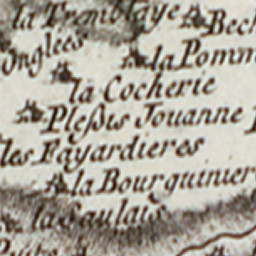 la Tremblaye Bech
Onglées
la Pomm
la Cocherie
Pleſsis Jouanne
les Fayardieres
la Bourguinier
la Saulais